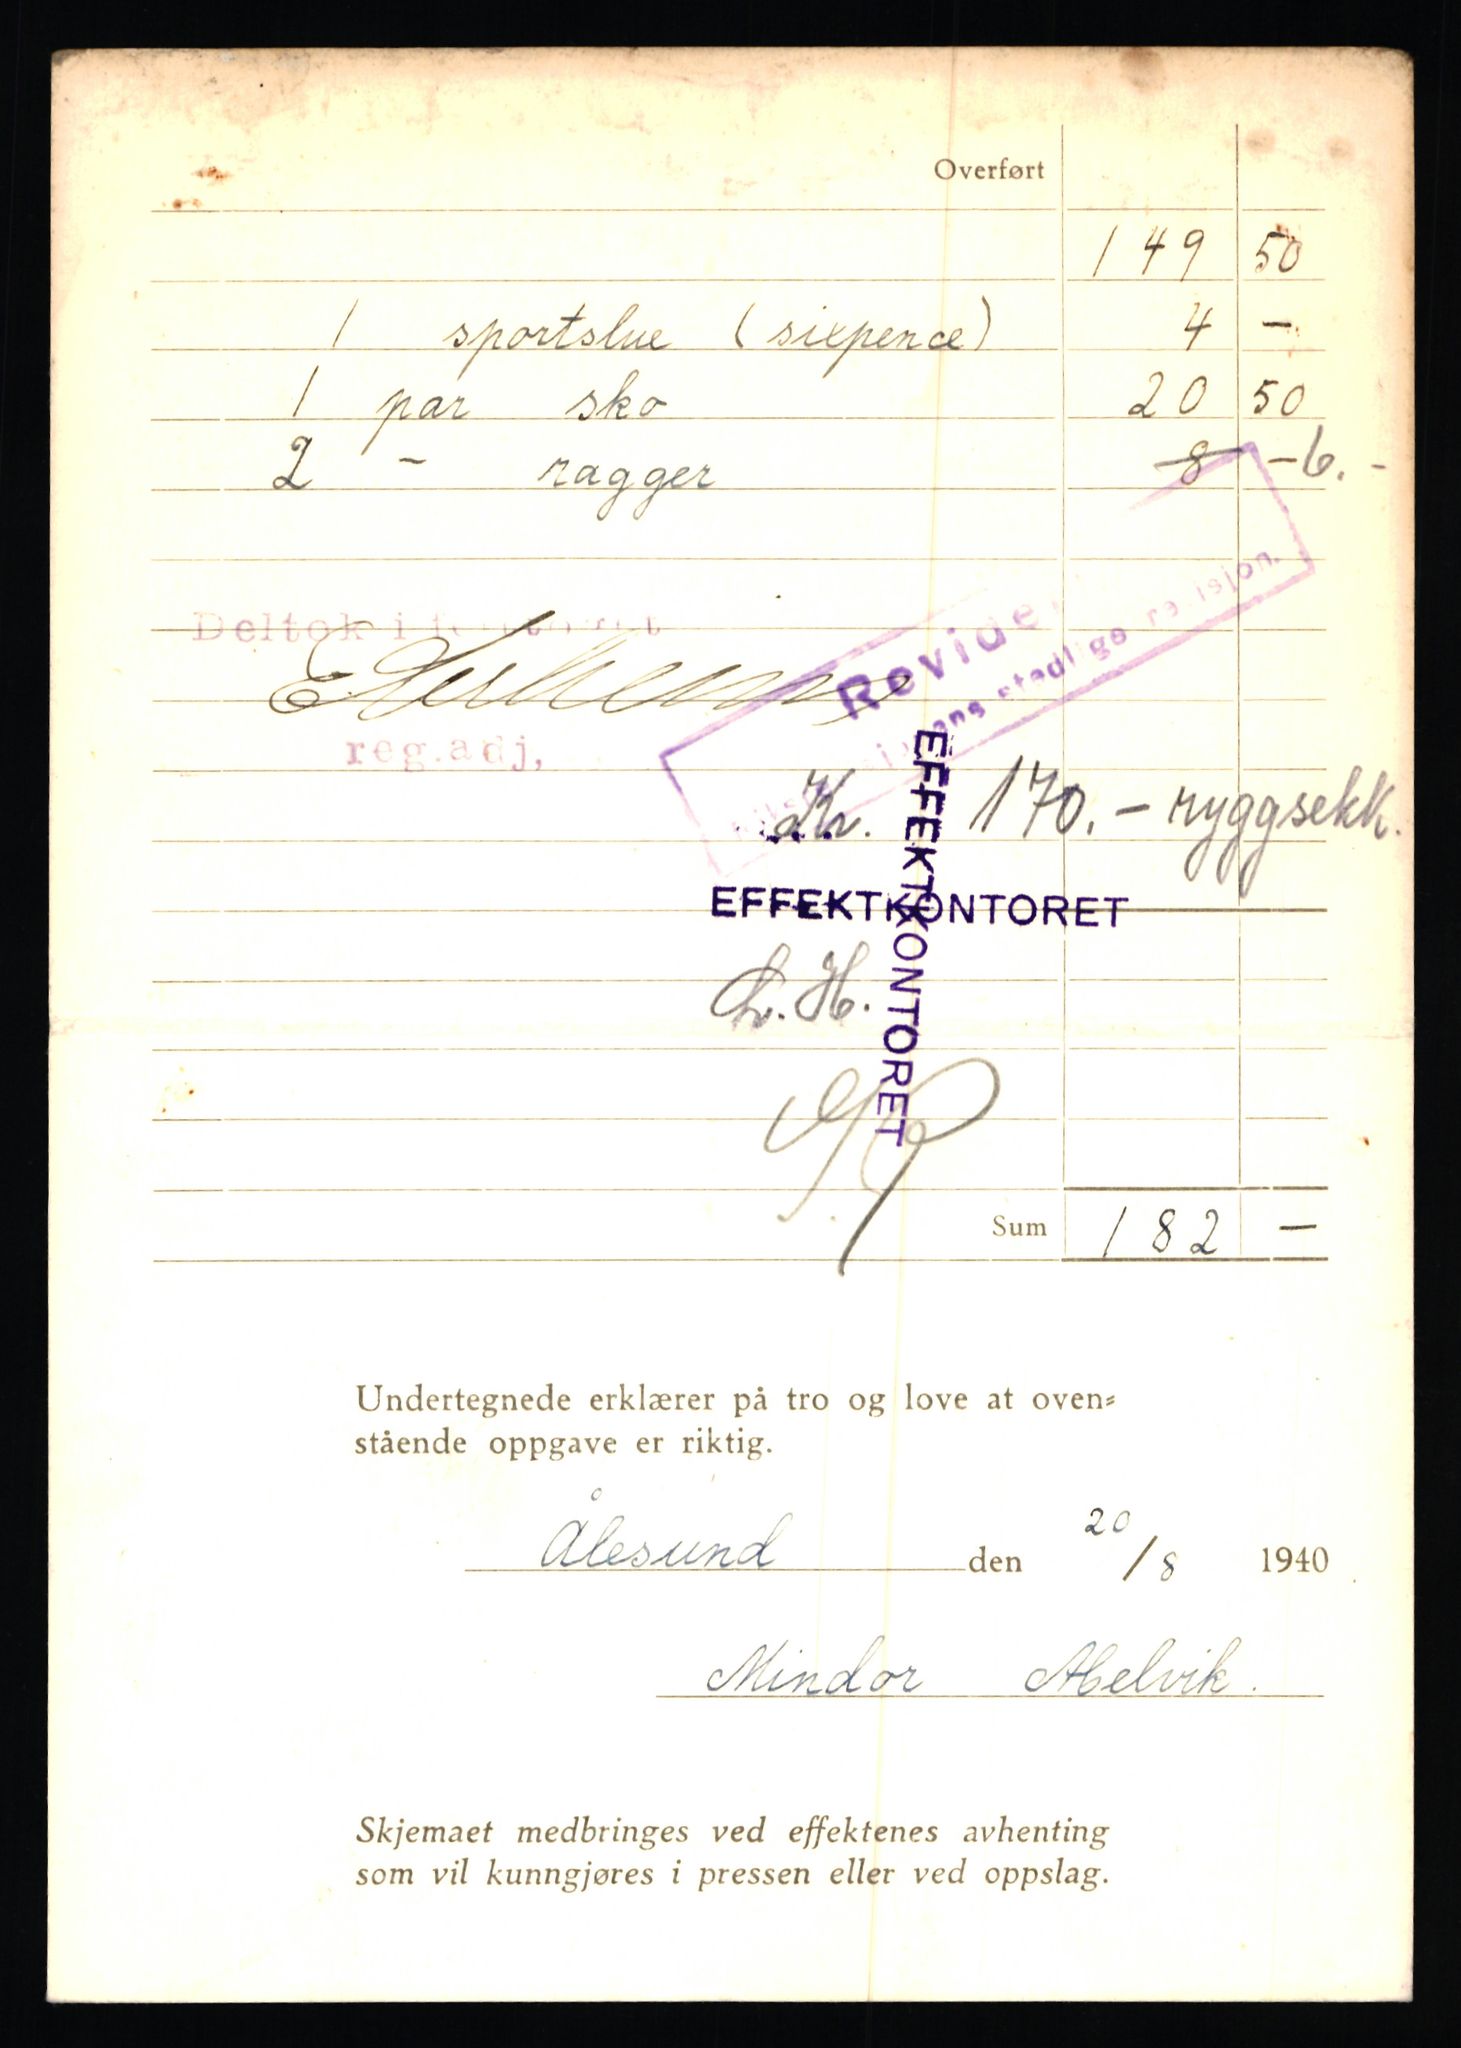 Overført
149 50
1 sportslue (sixpence) 4 -
1 par sko 20 50
2 - ragger 8 - 6.-
Deltok i
reg.adj,
Revide
stedlige revisjon.
Kr. 170.- ryggsekk.
EFFEKTKONTORET
EFFEKTKONTORET
L.H.
Sum 182 -
Undertegnede erklærer på tro og love at oven=
stående oppgave er riktig.
Ålesund den 20/8 1940
Mindor Melvik.
Skjemaet medbringes ved effektenes avhenting
som vil kunngjøres i pressen eller ved oppslag.